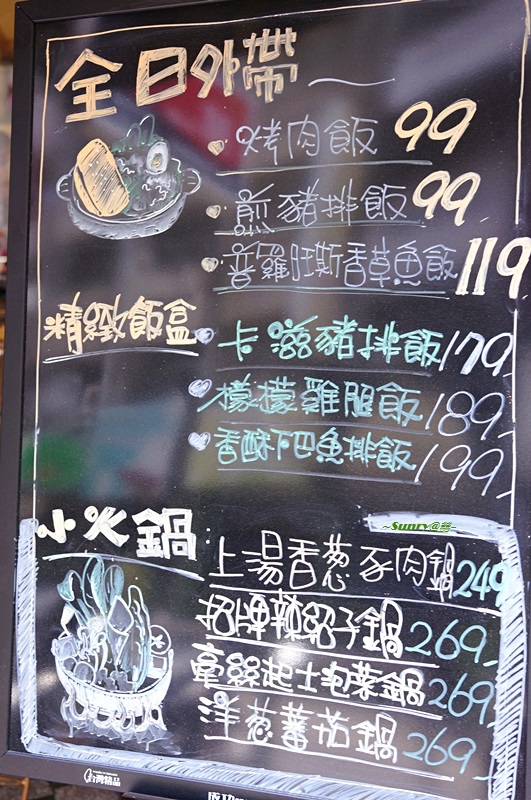 全日外帶
烤肉飯 99
煎豬排飯 99
普羅旺斯香草魚飯 119
精緻飯盒
卡滋豬排飯 179
檬檬雞腿飯 189
香酥巴魚排飯 199
~Sunry@
小火鍋
上湯香蔥豕肉鍋 249
招牌辣子鍋 269
牽絲起士泡菜鍋 269
洋蔥蕃茄鍋 269
台灣精品
成功